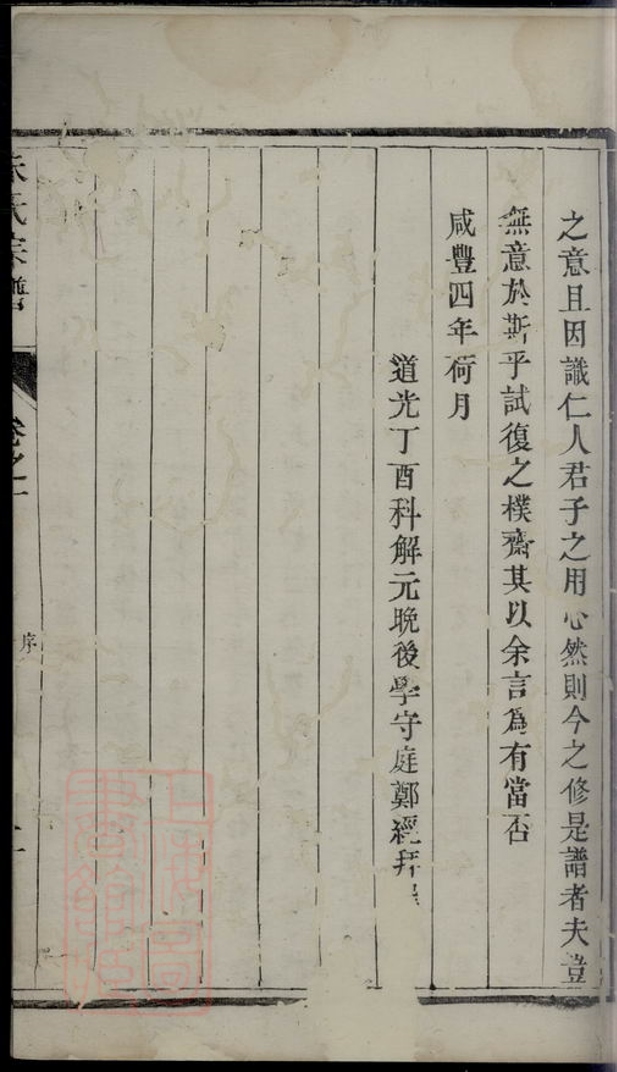 之意且因識仁人君子之用心然則今之修是譜者夫豈
無意於斯乎試復之樸齋其以余言爲有當否
咸豐四年荷月
道光丁酉科解元晩後學守庭鄭經拜
氏宗譜
卷之一
序